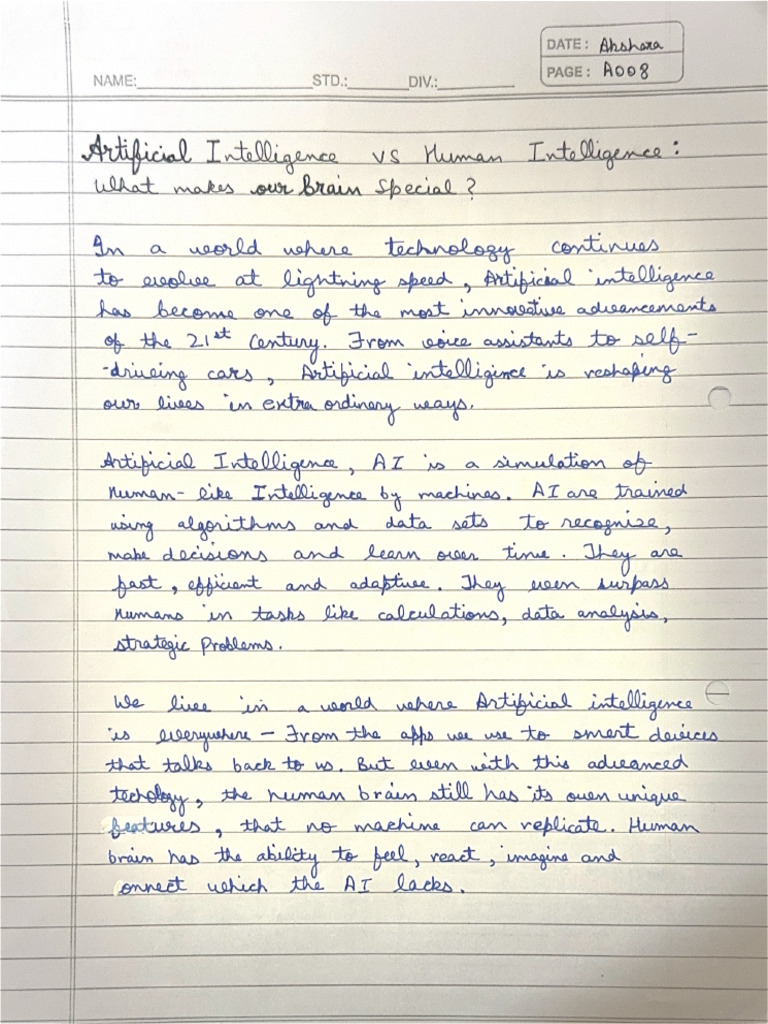 DATE: Akshara
NAME: STD.: DIV.:
PAGE: A008
Artificial Intelligence vs Human Intelligence:
What makes our Brain special?
In a world where technology continues
to evolve at lightning speed, Artificial intelligence
has become one of the most innovative advancements
of the 21st Century. From voice assistants to self-
-driving cars, Artificial intelligence is reshaping
our lives in extra ordinary ways.
Artificial Intelligence, AI is a simulation of
Human-like Intelligence by machines. AI are trained
using algorithms and data sets to recognise,
make decisions and learn over time. They are
fast, efficient and adaptive. They even surpass
Humans in tasks like calculations, data analysis,
strategic Problems.
We live in a world where Artificial intelligence
is everywhere - From the apps we use to smart devices
that talks back to us. But even with this advanced
techology, the human brain still has its own unique
features, that no machine can replicate. Human
brain has the ability to feel, react, imagine and
onnect which the AI lacks.